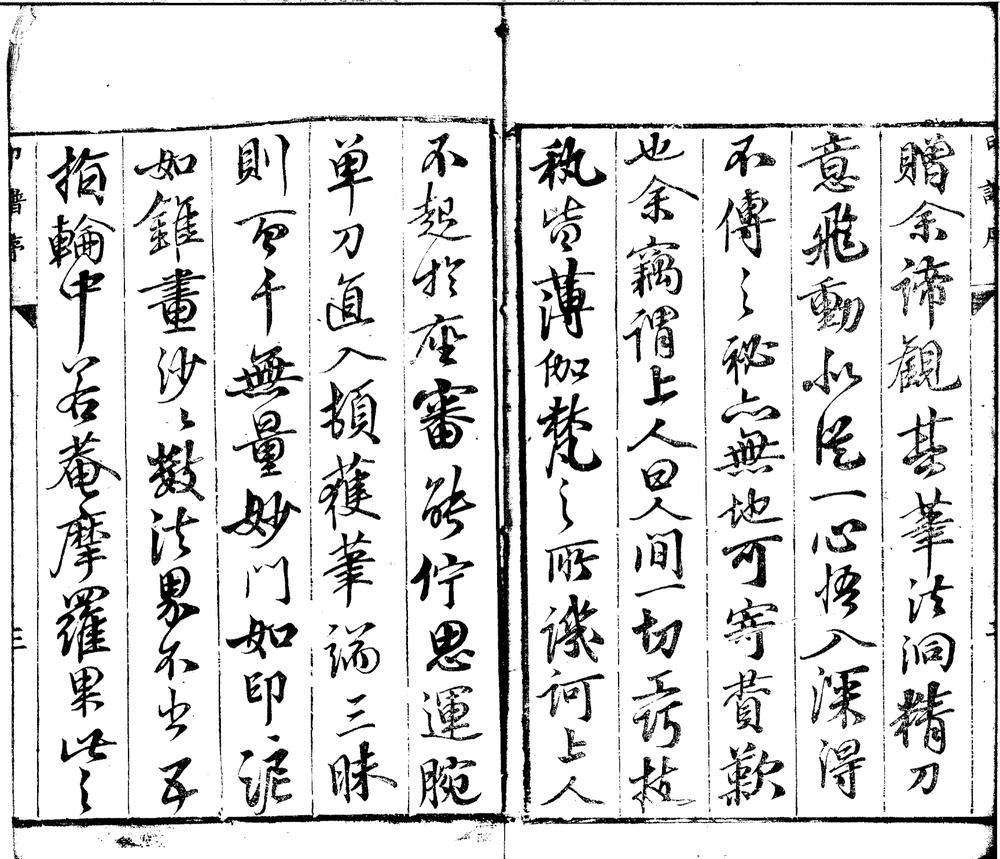 贈余諦觀其筆法洞精刀
意飛動似從一心悟入深得
不傳之秘亦無地可寄賛歎
也余竊謂上人曰人間一切工巧技
秇皆薄伽梵之所譏訶上人
不起於座審能佇思運腕
單刀直入頓獲筆端三昧
則百千無量妙門如印〻泥
如錐畫沙〻數法界不出五
指輪中若菴摩羅果此之
印譜序